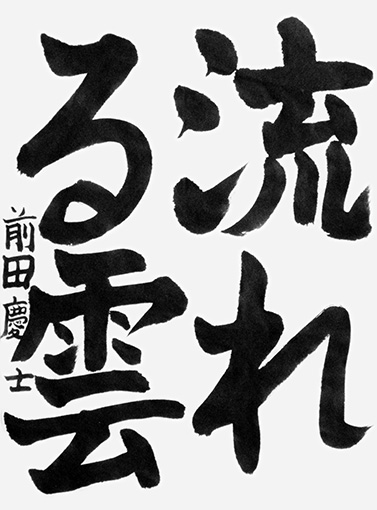 流れ
る雲
前田慶士